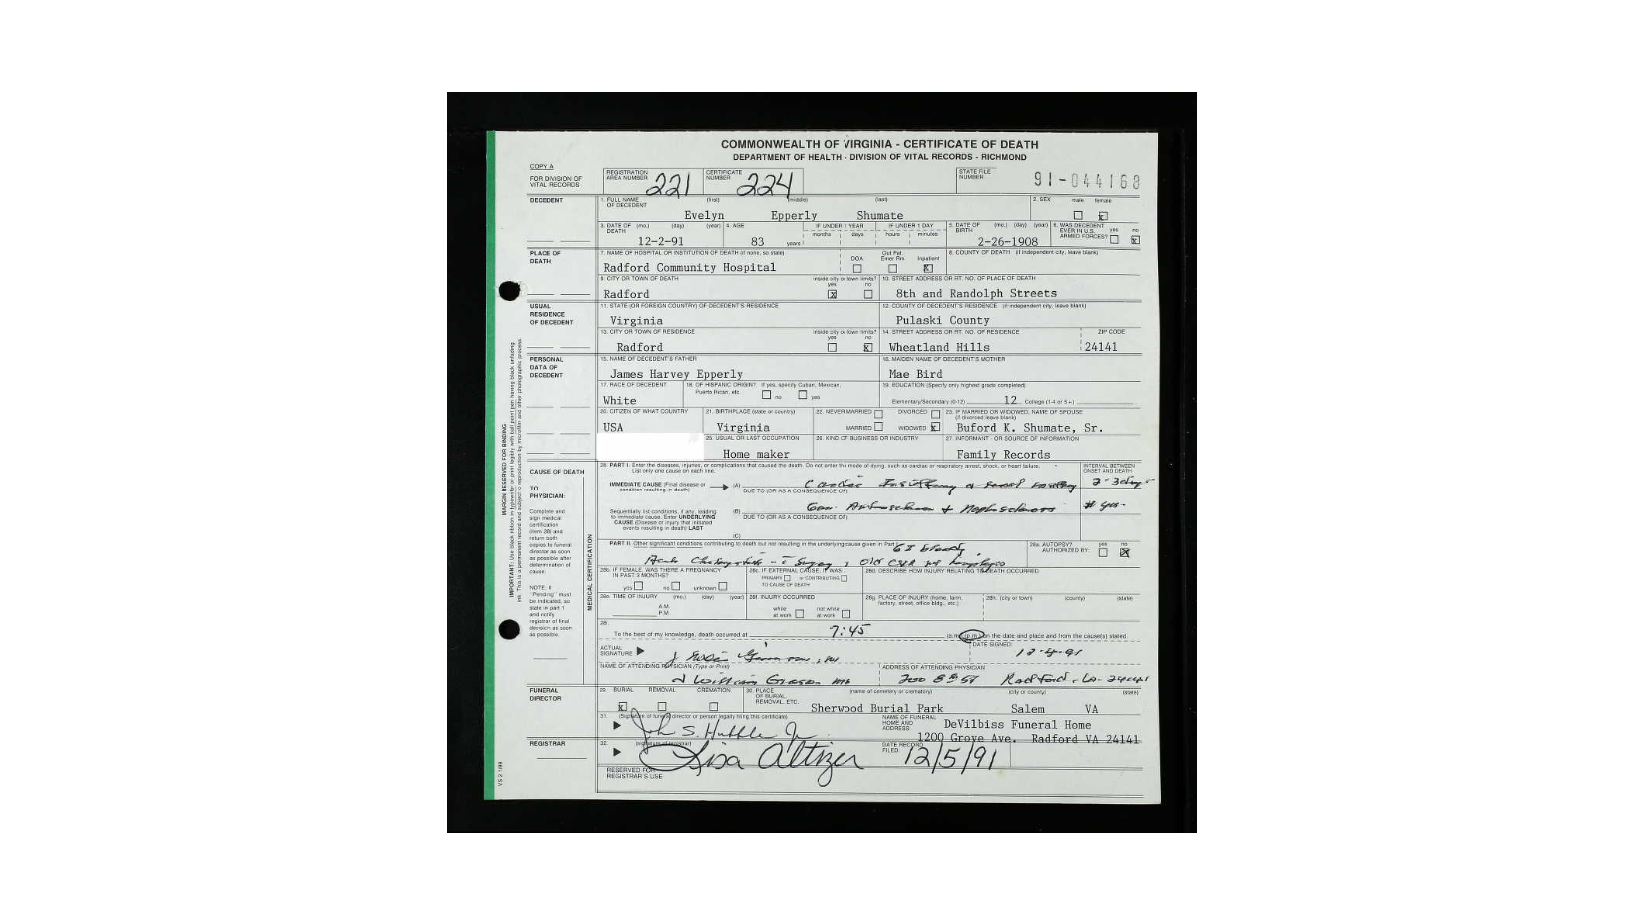 COMMONWEALTH OF VIRGINIA - CERTIFICATE OF DEATH
DEPARTMENT OF HEALTH - DIVISION OF VITAL RECORDS - RICHMOND
COPY A
FOR DIVISION OF VITAL RECORDS
REGISTRATION AREA NUMBER 221 CERTIFICATE NUMBER 224 STATE FILE NUMBER 91-044168
DECEDENT
1. FULL NAME OF DECEDENT (first) (middle) (last) 2. SEX male female
Evelyn Epperly Shumate x
3. DATE OF DEATH (mo.) (day) (year) 4. AGE IF UNDER 1 YEAR IF UNDER 1 DAY 5. DATE OF BIRTH (mo.) (day) (year) 6. WAS DECEDENT EVER IN U.S. ARMED FORCES? yes no
months days hours minutes
12-2-91 83 years 2-26-1908 x
PLACE OF DEATH
7. NAME OF HOSPITAL OR INSTITUTION OF DEATH (if none, so state) DOA Out Pat. Emer Rm. Inpatient 8. COUNTY OF DEATH (if independent city, leave blank)
Radford Community Hospital x
9. CITY OR TOWN OF DEATH inside city or town limits? yes no 10. STREET ADDRESS OR RT. NO. OF PLACE OF DEATH
Radford x 8th and Randolph Streets
USUAL RESIDENCE OF DECEDENT
11. STATE (OR FOREIGN COUNTRY) OF DECEDENT'S RESIDENCE 12. COUNTY OF DECEDENT'S RESIDENCE (if independent city, leave blank)
Virginia Pulaski County
13. CITY OR TOWN OF RESIDENCE inside city or town limits? yes no 14. STREET ADDRESS OR RT. NO. OF RESIDENCE ZIP CODE
Radford x Wheatland Hills 24141
PERSONAL DATA OF DECEDENT
15. NAME OF DECEDENT'S FATHER 16. MAIDEN NAME OF DECEDENT'S MOTHER
James Harvey Epperly Mae Bird
17. RACE OF DECEDENT 18. OF HISPANIC ORIGIN? If yes, specify Cuban, Mexican, Puerto Rican, etc. no yes 19. EDUCATION (Specify only highest grade completed)
White Elementary/Secondary (0-12) 12 College (1-4 or 5+)
20. CITIZEN OF WHAT COUNTRY 21. BIRTHPLACE (state or country) 22. NEVER MARRIED DIVORCED 23. IF MARRIED OR WIDOWED, NAME OF SPOUSE (if divorced leave blank)
USA Virginia MARRIED WIDOWED x Buford K. Shumate, Sr.
25. USUAL OR LAST OCCUPATION 26. KIND OF BUSINESS OR INDUSTRY 27. INFORMANT - OR SOURCE OF INFORMATION
Home maker Family Records
CAUSE OF DEATH
28. PART I. Enter the diseases, injuries, or complications that caused the death. Do not enter the mode of dying, such as cardiac or respiratory arrest, shock, or heart failure. List only one cause on each line. INTERVAL BETWEEN ONSET AND DEATH
IMMEDIATE CAUSE (Final disease or condition resulting in death) (A) Cardiac 2-3 days
DUE TO (OR AS A CONSEQUENCE OF)
Sequentially list conditions, if any, leading to immediate cause. Enter UNDERLYING CAUSE (Disease or injury that initiated events resulting in death) LAST
(B) Gen. + Nephrosclerosis # yrs.
DUE TO (OR AS A CONSEQUENCE OF)
(C)
PART II. Other significant conditions contributing to death but not resulting in the underlying cause given in Part I 28a. AUTOPSY? AUTHORIZED BY: yes no
28b. IF FEMALE, WAS THERE A PREGNANCY IN PAST 3 MONTHS? 28c. IF EXTERNAL CAUSE, IT WAS 28d. DESCRIBE HOW INJURY RELATING TO DEATH OCCURRED
yes no unknown PRIMARY or CONTRIBUTING TO CAUSE OF DEATH
28e. TIME OF INJURY (mo.) (day) (year) 28f. INJURY OCCURRED 28g. PLACE OF INJURY (home, farm, factory, street, office bldg., etc.) 28h. (city or town) (county) (state)
A.M. P.M. while at work not while at work
TO PHYSICIAN:
Complete and sign medical certification (item 28) and return both copies to funeral director as soon as possible after determination of cause.
NOTE: If "Pending" must be indicated, so state in part 1 and notify registrar of final decision as soon as possible.
MEDICAL CERTIFICATION
28. To the best of my knowledge, death occurred at 7:45 (a.m.) (p.m.) on the date and place and from the cause(s) stated.
ACTUAL SIGNATURE DATE SIGNED: 12-4-91
NAME OF ATTENDING PHYSICIAN (Type or Print) ADDRESS OF ATTENDING PHYSICIAN
J William 700 8th St Radford, Va. 24141
FUNERAL DIRECTOR
29. BURIAL REMOVAL CREMATION 30. PLACE OF BURIAL, REMOVAL, ETC. (name of cemetery or crematory) (city or county) (state)
x Sherwood Burial Park Salem VA
31. (Signature of funeral director or person legally filing this certificate) NAME OF FUNERAL HOME AND ADDRESS
DeVilbiss Funeral Home
1200 Grove Ave. Radford VA 24141
REGISTRAR
32. (signature of registrar) Lisa Altizer DATE RECORD FILED: 12/5/91
RESERVED FOR REGISTRAR'S USE
MARGIN RESERVED FOR BINDING
VS 2 1/89